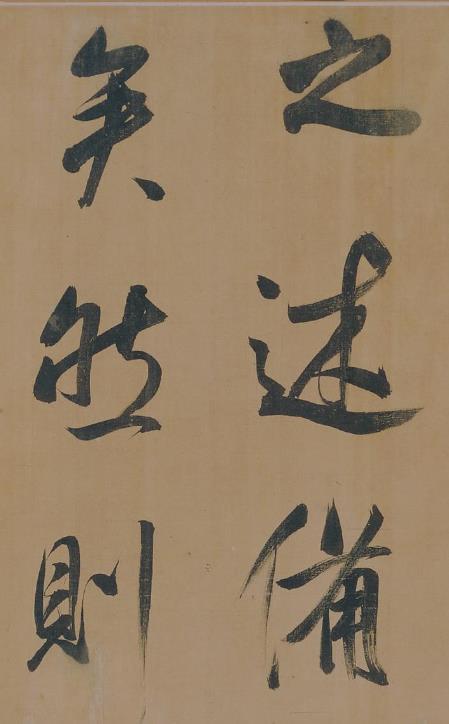 之述備
矣然則